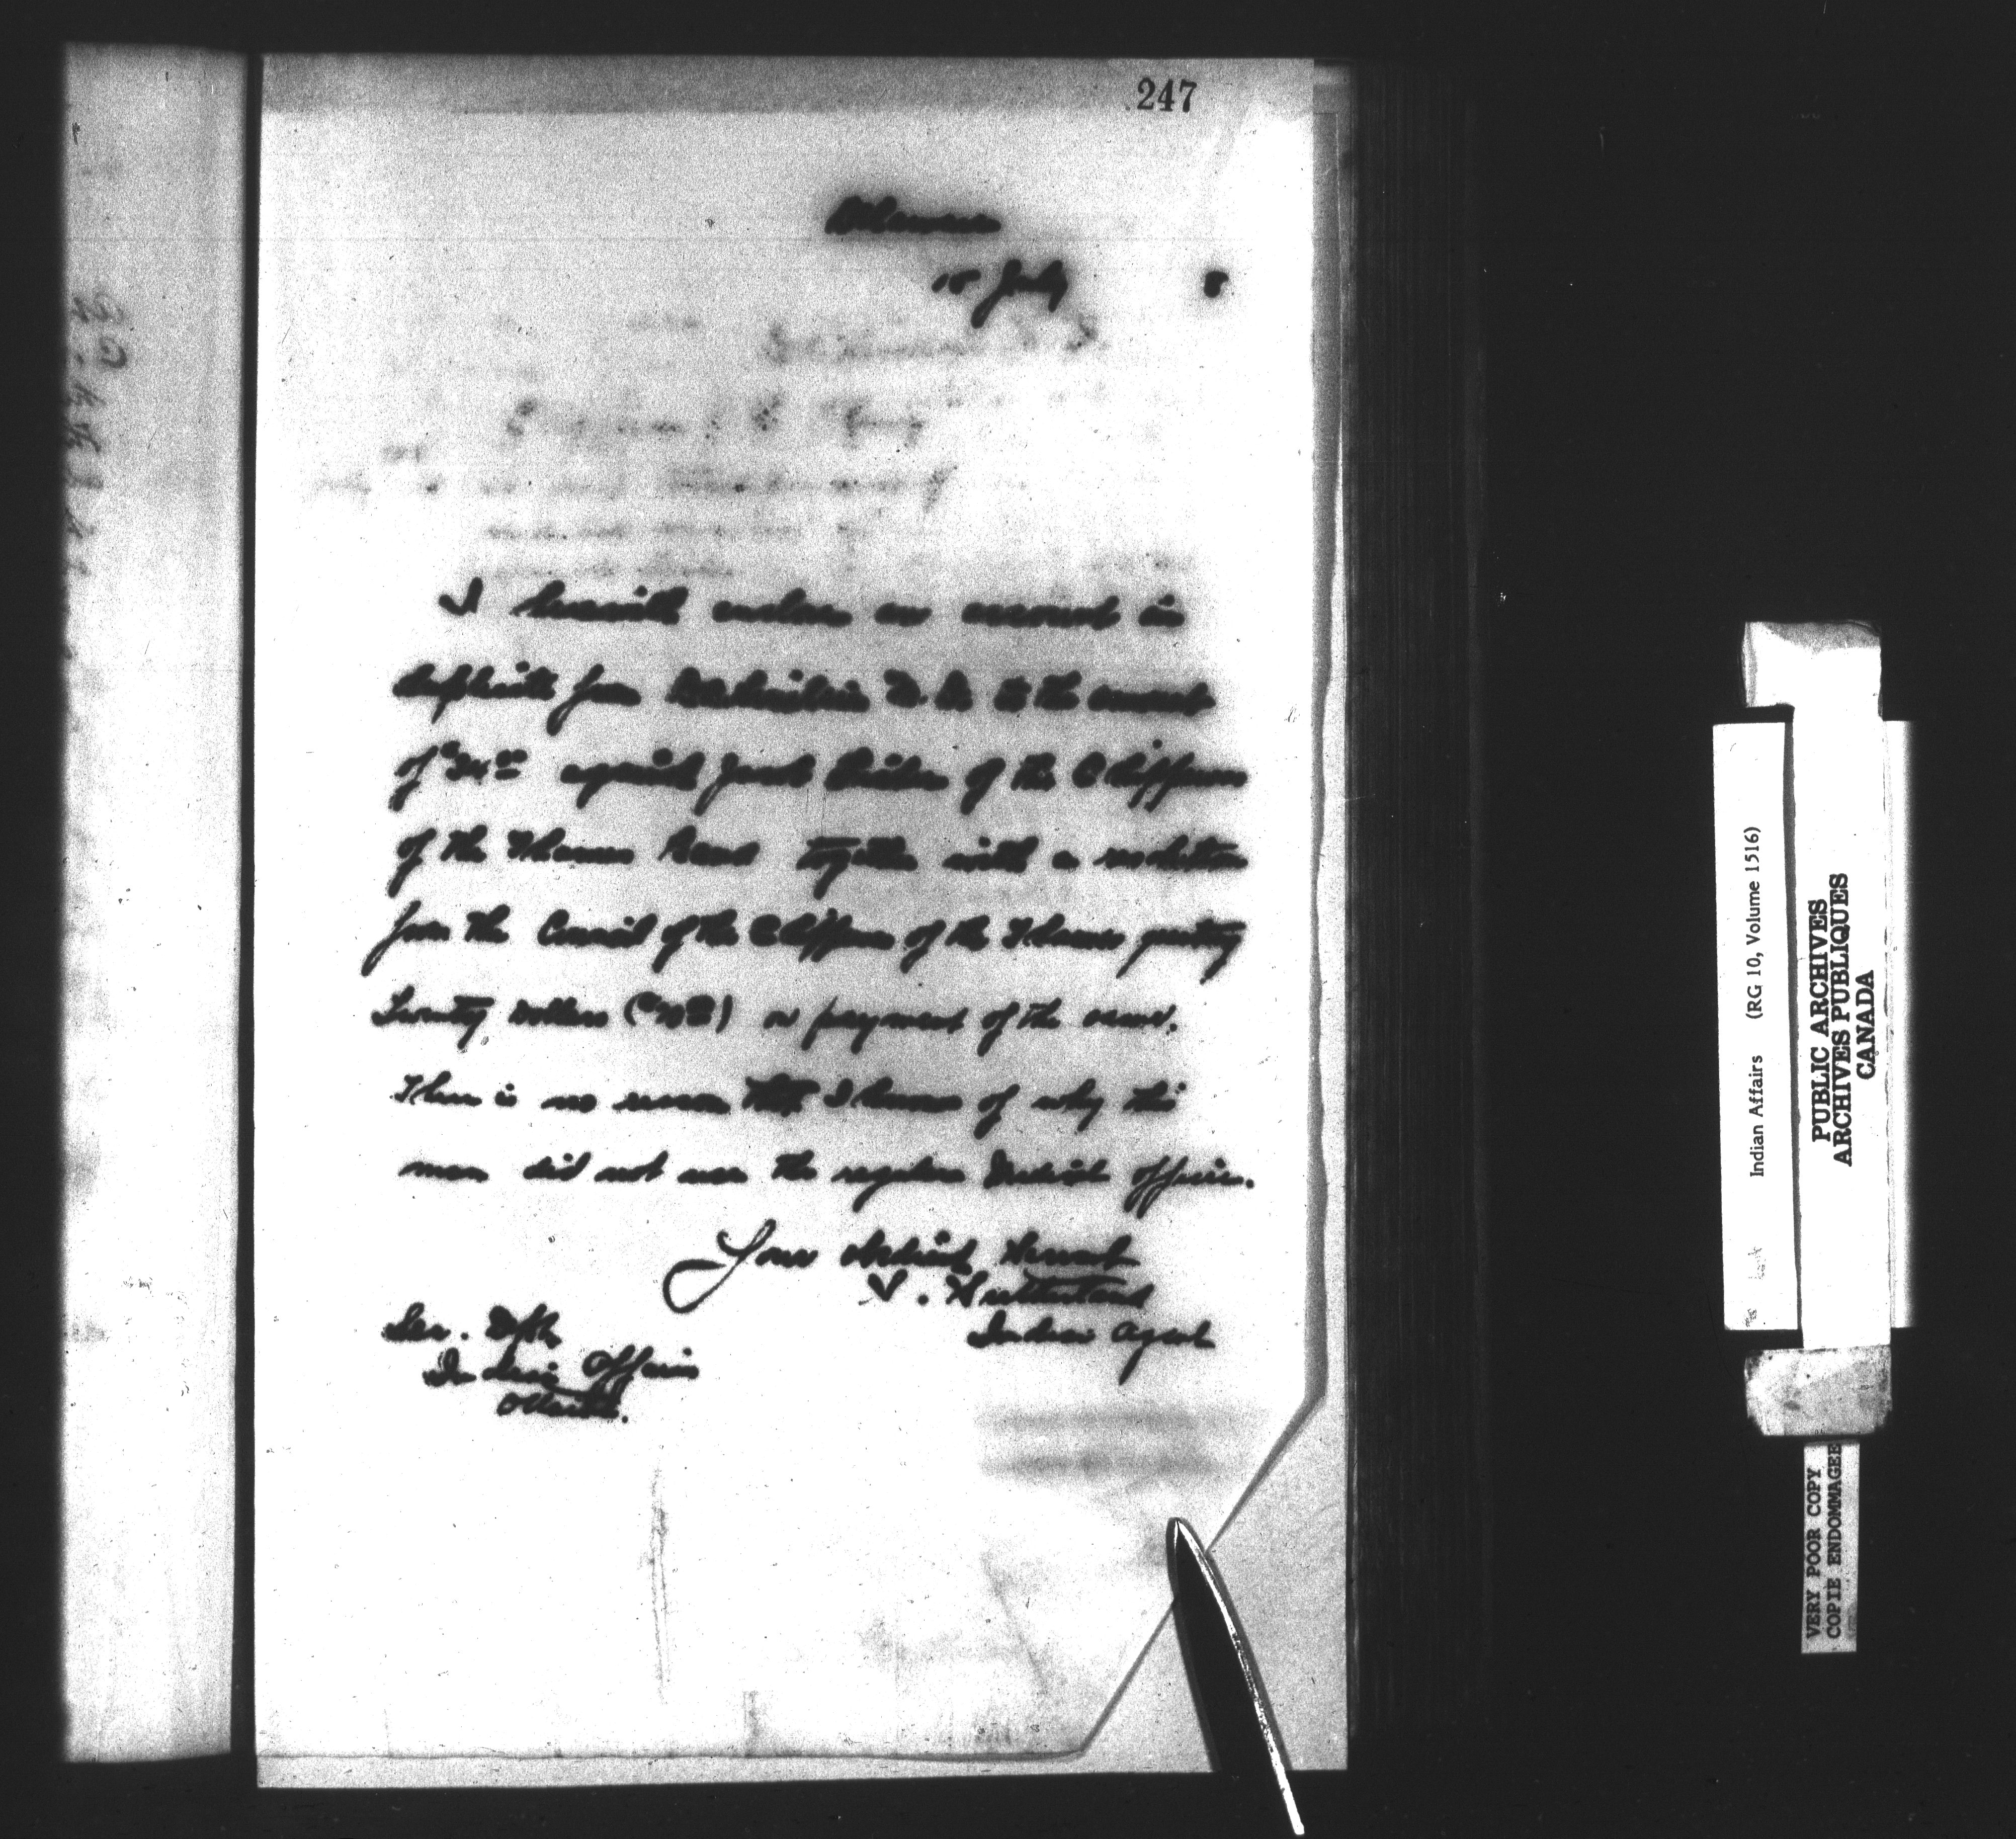 247
Delaware
15 July 8
I herewith enclose an account in
duplicate from M.D. to the amount
of against of the Chippewas
of the Thames Band together with a resolution
from the Council of the Chippewas of the Thames granting
Twenty Dollars ( ) payment of the same.
There is no reason that I know of why this
man did not use the regular Medical officer.
Your obedient Servant
S. Sutherland
Indian Agent
Sec. Dept
Indian Affairs
Ottawa.
Indian Affairs (RG 10, Volume 1516)
PUBLIC ARCHIVES
ARCHIVES PUBLIQUES
CANADA
VERY POOR COPY
COPIE ENDOMMAGEE